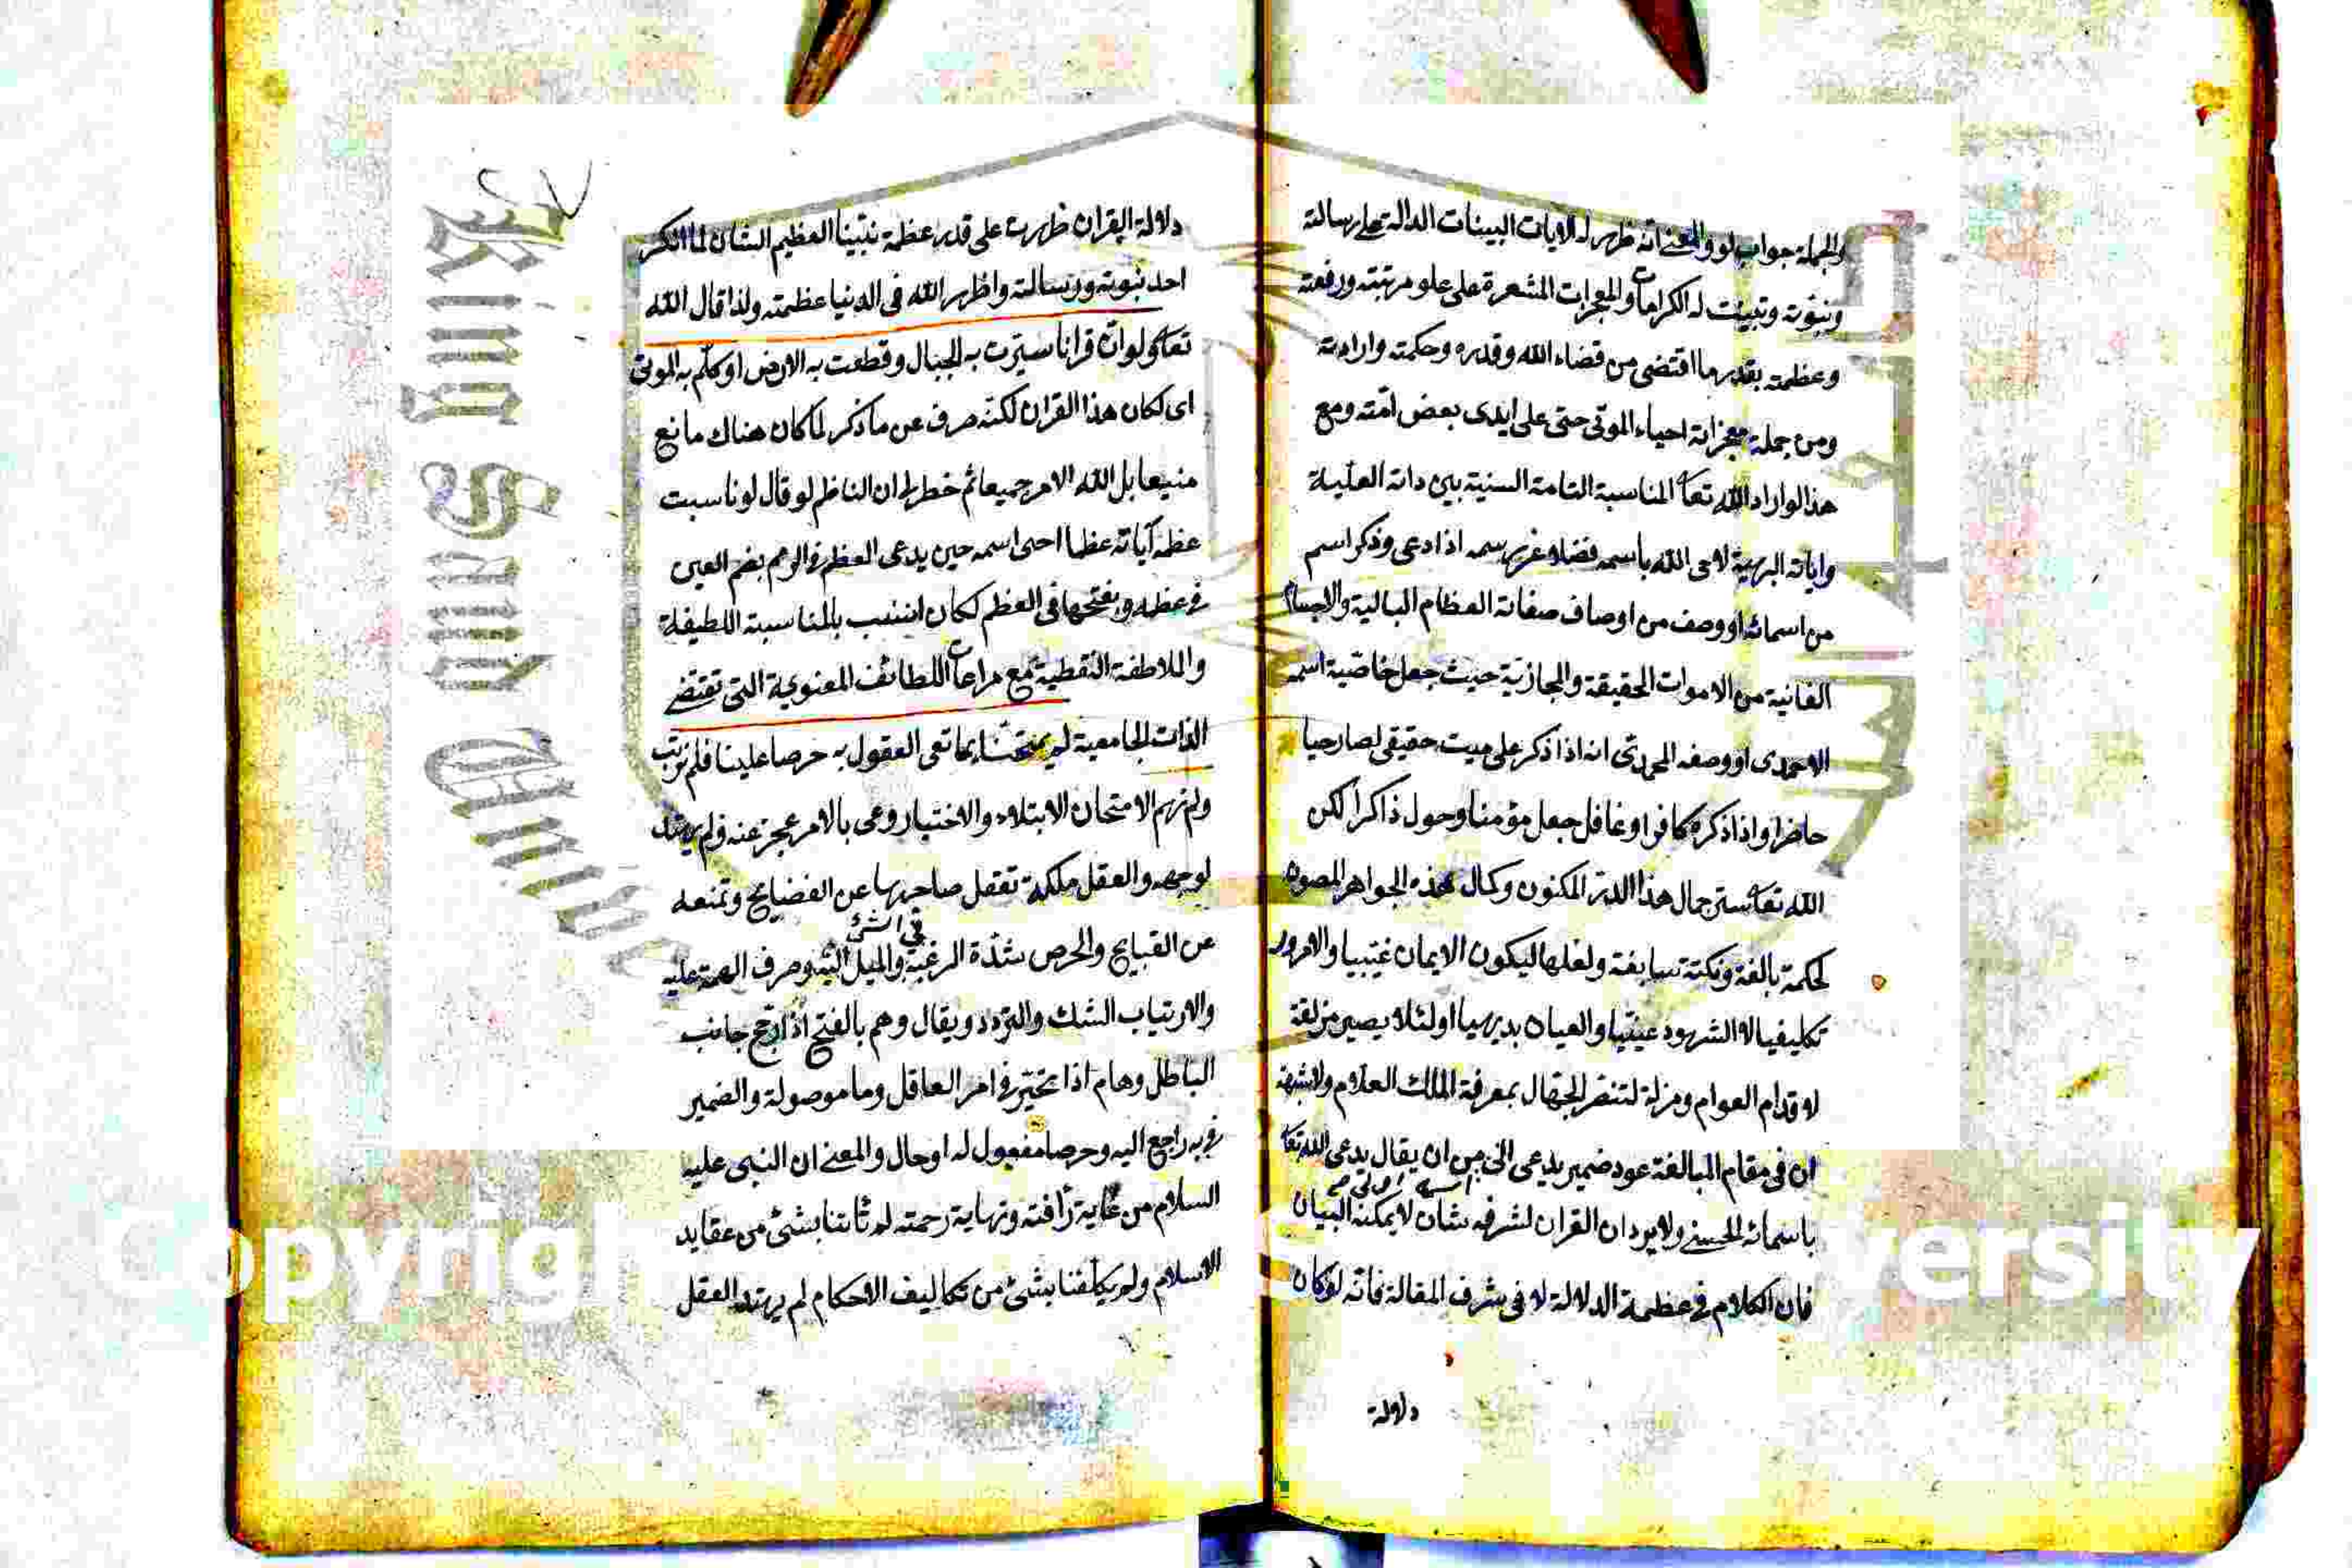 والجملة جواب لو والمعنى انه ظهر له الايات البينات الدالة على رسالته
ونبوته وتبينت له الكرامات والمعجزات المشعرة على علو مرتبته ورفعة
وعظمته بقدر ما اقتضى من قضاء الله وقدره وحكمته وارادته
ومن جملة معجزاته احياء الموتى حتى على ايدى بعض امته ومع
هذا لو اراد الله تعا المناسبة التامة السنية بين ذاته العلية
واياته البهية لاحى الله باسمه فضلا عن رسمه اذا دعى وذكر اسم
من اسمائه او وصف من اوصاف صفاته العظام البالية والاجسام
الفانية من الاموات الحقيقة والمجازية حيث جعل خاصية اسمه
الاحمدى او وصفه المحمدى انه اذا ذكر على ميت حقيقى لصار حيا
حاضرا واذا ذكره كافر او غافل جعل مؤمنا وحول ذاكرا لكن
الله تعا ستر جمال هذا الدر المكنون وكمال هذه الجواهر المصون
لحكمة بالغة ونكتة سابغة ولعلها ليكون الايمان غيبيا والامور
تكليفيا لا الشهود عينيا والعيان بديهيا او لئلا يصير مزلقة
لاقدام العوام ومزلة لتنفر الجهال بمعرفة الملك العلام ولا شبهة
ان فى مقام المبالغة عود ضمير يدعى الى من ان يقال يدعى الله تعا
اسمه اولى
باسمائه الحسنى ولا يرد ان القران لشرفه شان لا يمكنه البيان
فان الكلام فى عظمة الدلالة لا فى شرف المقالة فانه لو كان
دلالة
دلالة القران ظهرت على قدر عظمة نبينا العظيم الشان لما انكر
احد نبوته ورسالته واظهر الله فى الدنيا عظمته ولذا قال الله
تعا ولو ان قرانا سيرت به الجبال وقطعت به الارض او كلم به الموتى
اى لكان هذا القران لكنه صرف عن ما ذكر لما كان هناك مانع
منيعا بل لله الامر جميعا ثم خطر لى ان الناظم لو قال لو ناسبت
عظم آياته عظما احى اسمه حين يدعى العظم فى الرمم بضم العين
فى عظمه وبفتحها فى العظم لكان انسب بالمناسبة اللطيفة
والملاطفة اللفظية مع مراعات اللطائف المعنوية التى تقتضى
الذات الجامعية لم يمتحنا بما تعى العقول به حرصا علينا فلم نرتب
ولم نهم الامتحان الابتلاء والاختبار وعى بالامر عجز عنه ولم يهتد
لوجهه والعقل ملكة تعقل صاحبها عن الفضايح وتمنعه
فى الشئ
عن القبايح والحرص شدة الرغبة والميل اليه وصرف الهمة عليه
والارتياب الشك والتردد ويقال وهم بالفتح اذا رجح جانب
الباطل وهام اذا تحير فى امر العاقل وما موصولة والضمير
فى به راجع اليه وحرصا مفعول له او حال والمعنى ان النبى عليه
السلام من غاية رأفته ونهاية رحمته لم ثابتنا بشئ من عقايد
الاسلام ولم يكلفنا بشئ من تكاليف الاحكام لم يهتد العقل
King Saud Univer
Copyrig
versity